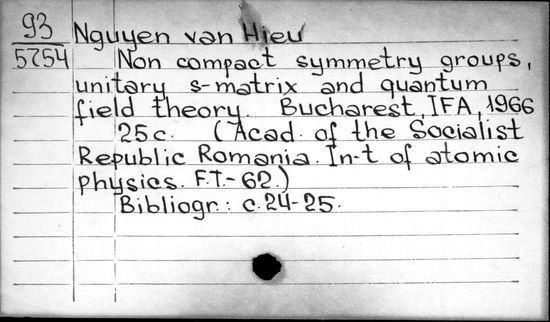 93
5754
Nguyen van Hieu
Non compact symmetry groups,
unitary s-matrix and quantum
field theory. Bucharest, IFA, 1966
25 c. (Acad. of the Socialist
Republic Romania. In-t of atomic
physics. F.T.-62.)
Bibliogr.: c.24-25.